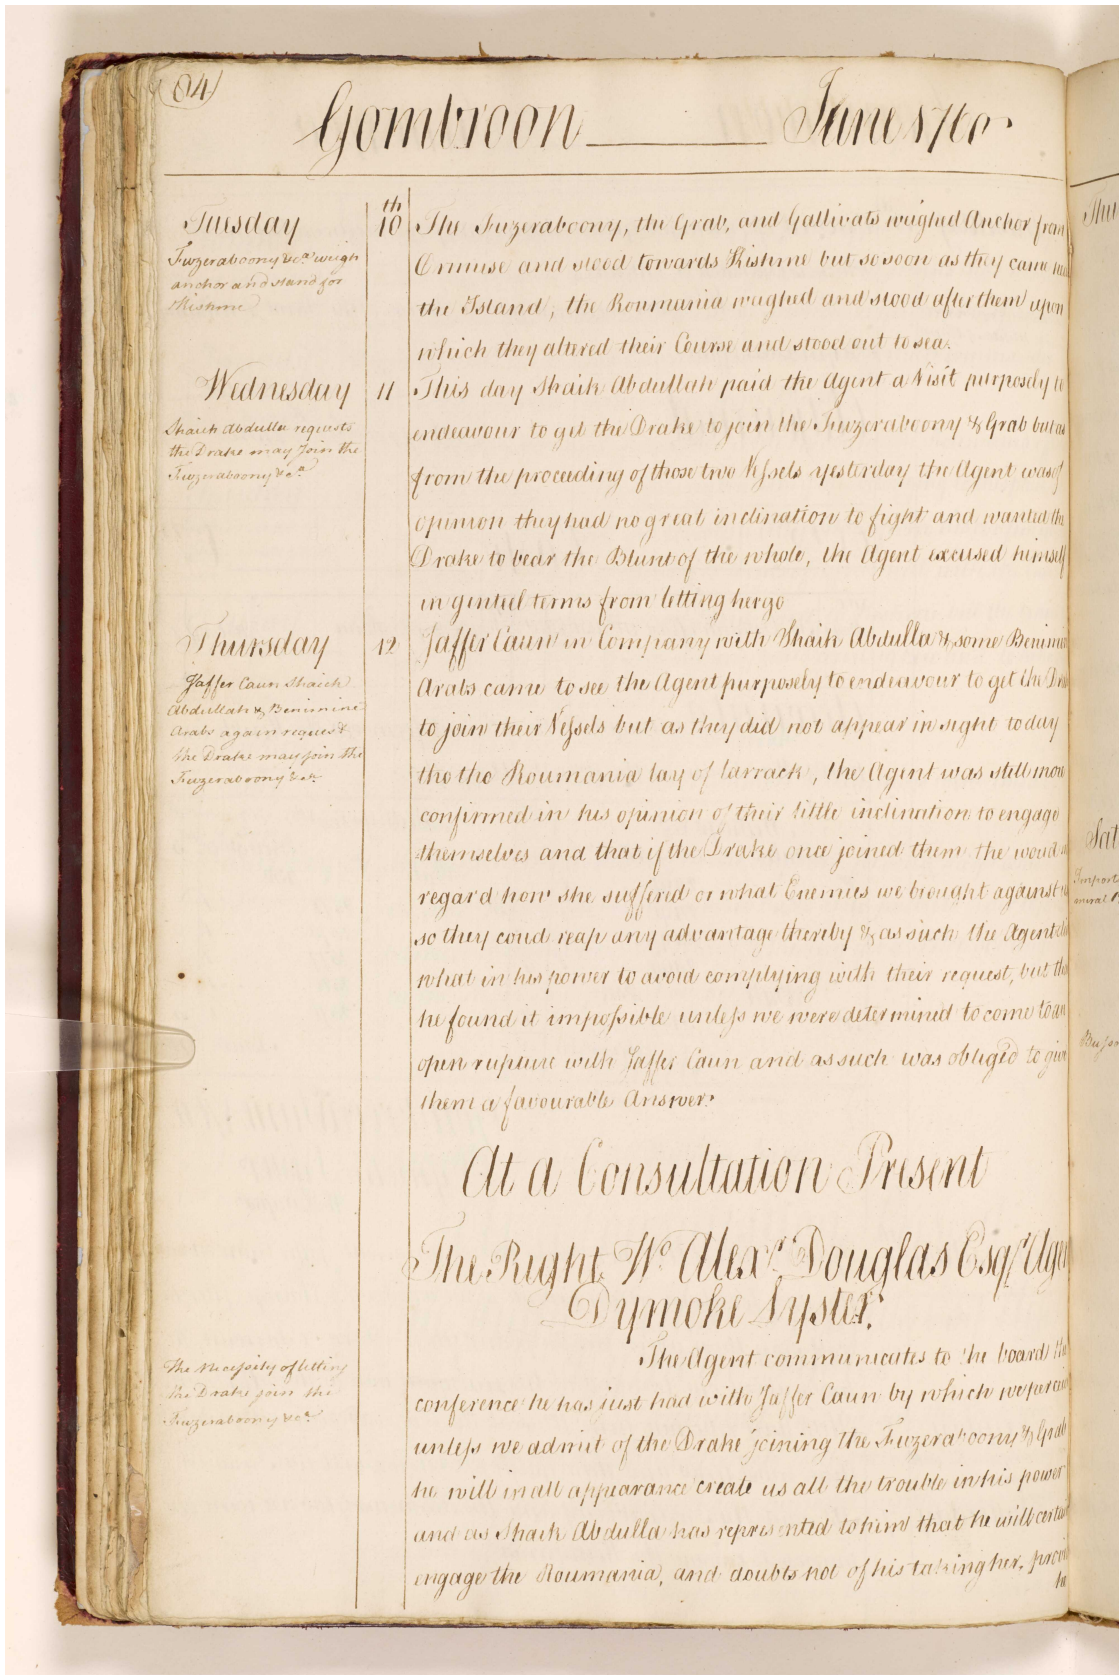 84
Gombroon June 1760
Tuesday
Fuzeraboony &ca. weigh
anchor and stand for
Kishme
10th
The Fuzeraboony, the Grab, and Gallivats weighed Anchor from
Ormuse and stood towards Kishme but so soon as they came
the Island, the Roumania weighed and stood after them upon
which they altered their Course and stood out to sea.
Wednesday
Shaik Abdulla requests
the Drake may join the
Fuzeraboony &ca.
11
This day Shaik Abdullah paid the Agent a Visit purposely to
endeavour to get the Drake to join the Fuzeraboony & Grab but as
from the proceeding of those two Vessels yesterday the Agent was of
opinion they had no great inclination to fight and wanted the
Drake to bear the Blunt of the whole, the Agent excused himself
in genteel terms from letting her go
Thursday
Jaffer Caun Shaick
Abdullah & Benimine
Arabs again request
the Drake may join the
Fuzeraboony &ca.
12
Jaffer Caun in Company with Shaik Abdulla & some
Arabs came to see the Agent purposely to endeavour to get the
to join their Vessels but as they did not appear in sight to day
tho the Roumania lay of Larrack, the Agent was still more
confirmed in his opinion of their little inclination to engage
themselves and that if the Drake once joined them the woud
regard how she suffered or what Enemies we brought against
so they coud reap any advantage thereby & as such the Agent
what in his power to avoid complying with their request, but
he found it impossible unless we were determined to come to an
open rupture with Jaffer Caun and as such was obliged to give
them a favourable Answer.
At a Consultation Present
The Right Wo. Alexr. Douglas Esqr.
Dymoke Lyster.
The necessity of letting
the Drake join the
Fuzeraboony &ca.
The Agent communicates to the board the
conference he has just had with Jaffer Caun by which we
unless we admit of the Drake joining the Fuzeraboony & Grab
he will in all appearance create us all the trouble in his power
and as Shaik Abdulla has represented to him that he will
engage the Roumania, and doubts not of his taking her,